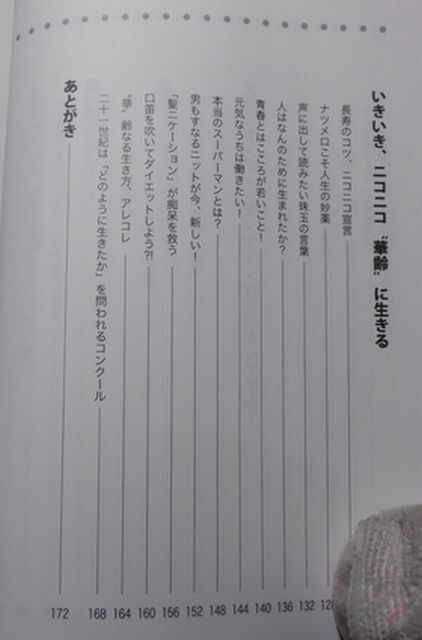 いきいき、ニコニコ〝華齢〟に生きる
長寿のコツ、ニコニコ宣言
ナツメロこそ人生の妙薬 128
声に出して読みたい珠玉の言葉 132
人はなんのために生まれたか？ 136
青春とはこころが若いこと！ 140
元気なうちは働きたい！ 144
本当のスーパーマンとは？ 148
男もすなるニットが今、新しい！ 152
「髪ニケーション」が痴呆を救う 156
口笛を吹いてダイエットしよう?! 160
〝華〟齢なる生き方、アレコレ 164
二十一世紀は「どのように生きたか」を問われるコンクール 168
あとがき 172